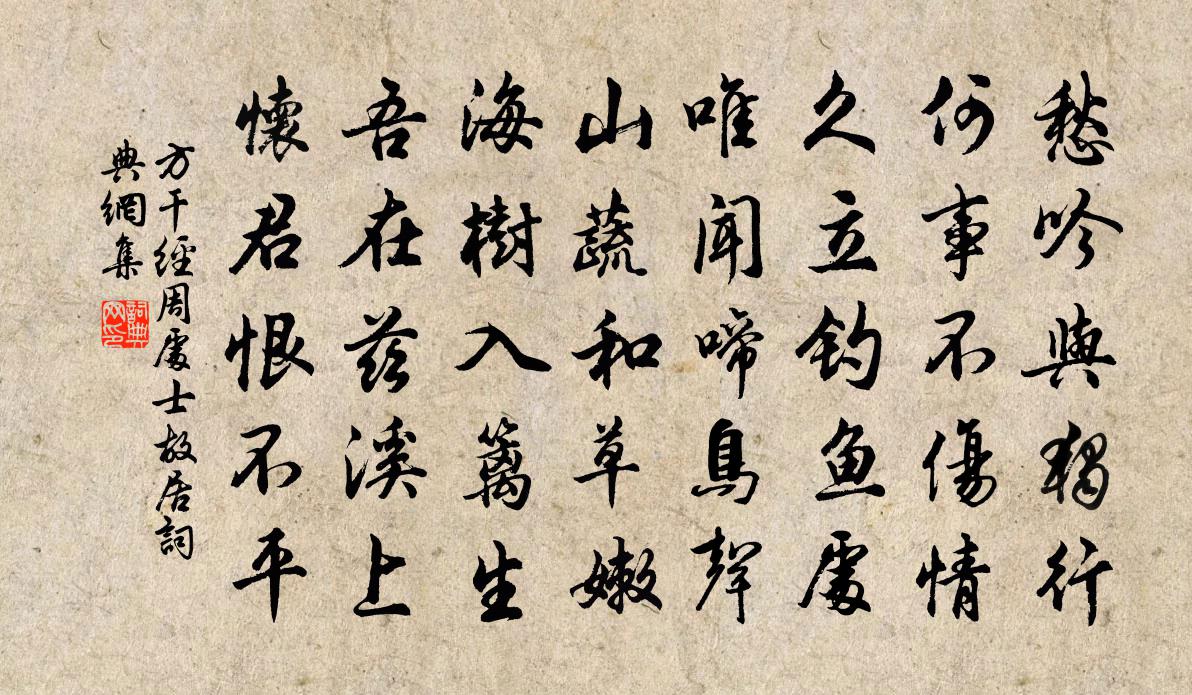 愁吟與獨行
何事不傷情
久立釣魚處
唯聞啼鳥聲
山蔬和草嫩
海樹入籬生
吾在茲溪上
懷君恨不平
方干經周處士故居詞
典網集
詞典
网印